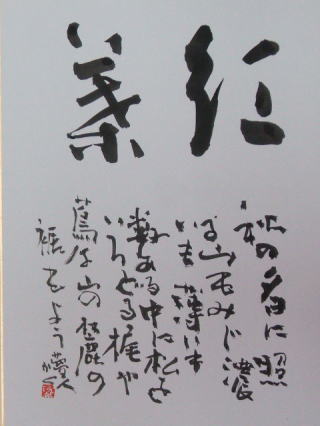 紅葉
秋の夕日に照
る山もみじ濃
いも薄いも
数ある中に松を
いろどる楓や
蔦は山の麓の
裾もよう